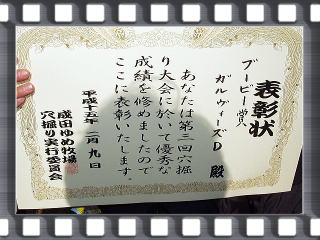 表彰状
ブービー賞
ガルヴィーズD 殿
あなたは第三回穴掘
り大会に於いて優秀な
成績を修めましたので
ここに表彰いたします。
平成十五年 二月 九日
成田ゆめ牧場
穴掘り実行委員会